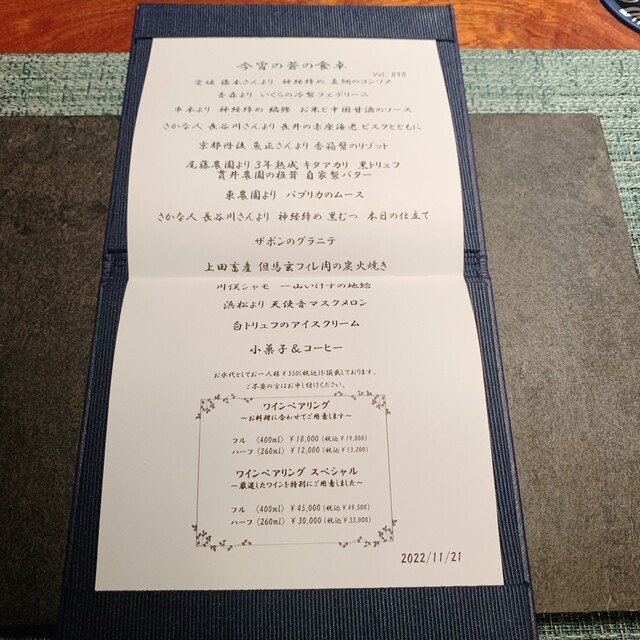 今宵の蒼の食卓
Vol. 898
愛媛 藤本さんより 神経締め 真鯛のコンソメ
青森より いくらの冷製フェデリーニ
串本より 神経締め 縞鰺 お米と中国甘酒のソース
さかな人 長谷川さんより 長井の赤座海老 ビスクとともに
京都丹後 魚正さんより 香箱蟹のリゾット
尾藤農園より 3年熟成 キタアカリ 黒トリュフ
貫井農園の椎茸 自家製バター
東農園より パプリカのムース
さかな人 長谷川さんより 神経締め 黒むつ 本日の仕立て
ザボンのグラニテ
上田畜産 但馬玄フィレ肉の炭火焼き
川俣シャモ 一山いけすの地蛤
浜松より 天使音マスクメロン
白トリュフのアイスクリーム
小菓子&コーヒー
お水代としてお一人様¥550(税込)を頂戴しております。
ご不要の方はお申し付けください。
ワインペアリング
〜お料理に合わせてご用意します〜
フル 〈400ml〉 ¥18,000 (税込¥19,800)
ハーフ 〈260ml〉 ¥12,000 (税込¥13,200)
ワインペアリング スペシャル
〜厳選したワインを特別にご用意しました〜
フル 〈400ml〉 ¥45,000 (税込¥49,500)
ハーフ 〈260ml〉 ¥30,000 (税込¥33,000)
2022/11/21